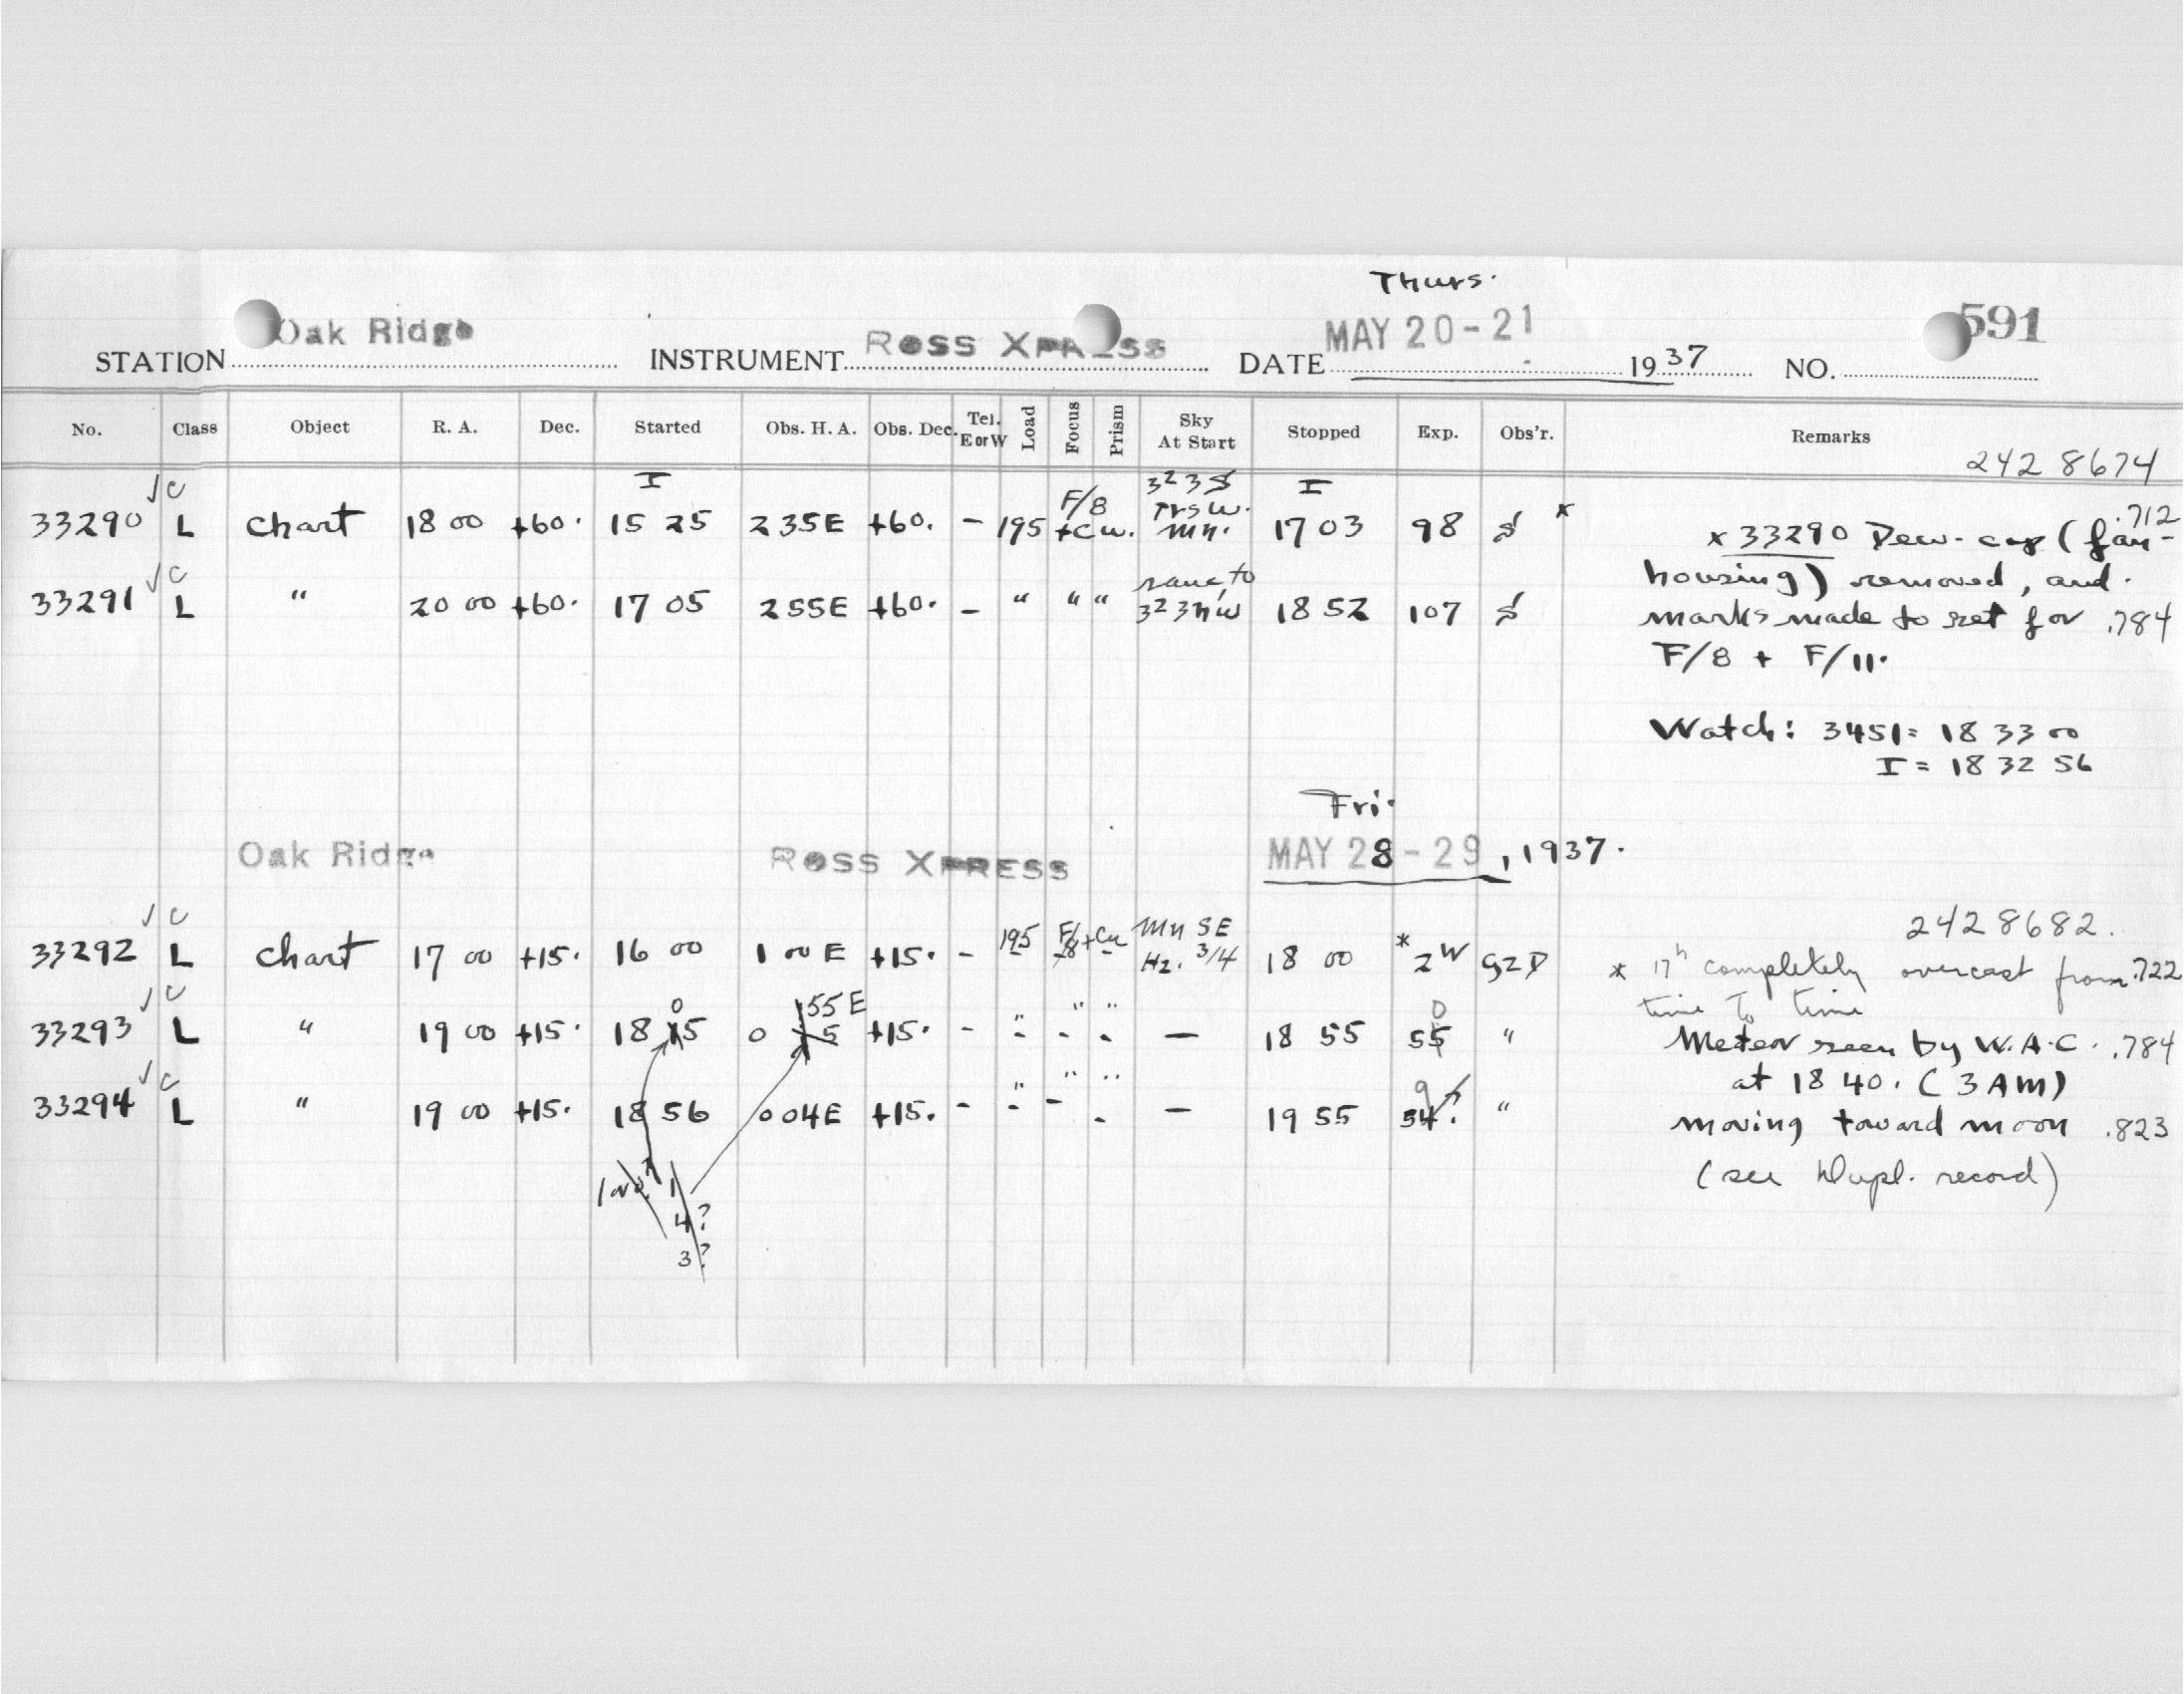 Thurs.
STATION Oak Ridge INSTRUMENT ROSS XPRESS DATE MAY 20-21 1937 NO. 591
No. Class Object R. A. Dec. Started Obs. H. A. Obs. Dec. Tel. E or W Load Focus Prism Sky At Start Stopped Exp. Obs'r. Remarks
242 8674
√ C I F/8 323S I
33290 L Chart 18 00 +60. 15 25 2 35E +60. - 195 +Cu. Trs w. Mn. 17 03 98 x .712
x 33290 Dew-cap (fan-
√ C same to
housing) removed, and
33291 L " 20 00 +60. 17 05 2 55E +60. - " " " 323NW 18 52 107 marks made to set for .784
F/8 + F/11.
Watch: 3451 = 18 33 00
I = 18 32 56
Fri.
Oak Ridge ROSS XPRESS MAY 28-29, 1937.
√ C 242 8682.
33292 L Chart 17 00 +15. 16 00 1 00 E +15. - 195 F/8 +Cu Mn SE Hz. 3/4 18 00 * 2W GZD * 17h completely overcast from .722
time to time
√ C 0 55 E " " " 0
33293 L " 19 00 +15. 18 15 0 15 +15. - - - - — 18 55 55 " Meteor seen by W.A.C. .784
at 18 40. (3 AM)
√ C " " " 9
33294 L " 19 00 +15. 18 56 0 04E +15. - - - - — 19 55 54. " moving toward moon .823
(see Dupl. record)
1 or 1
4?
3?